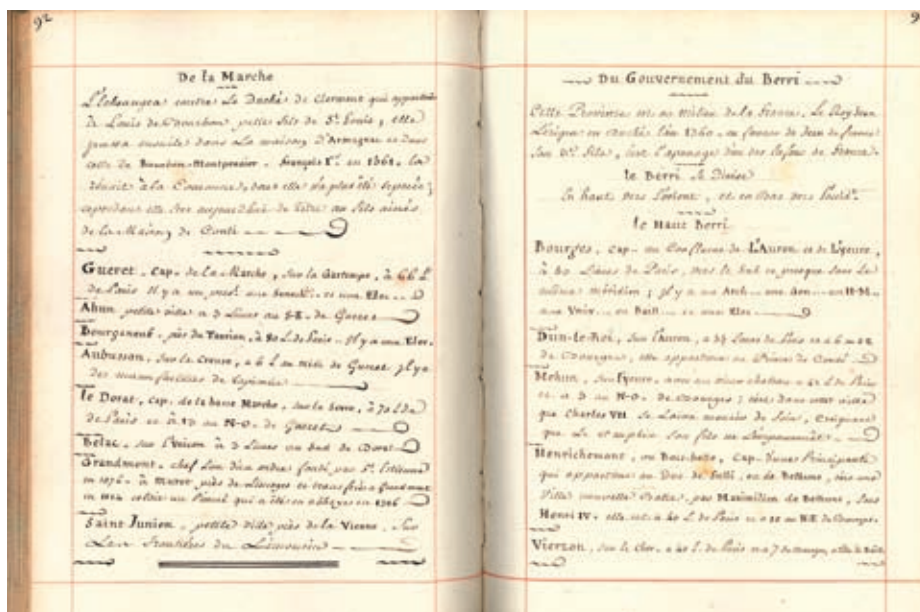 92
De la Marche
L'échangea contre Le Duché de Clermont qui
à Louis de Bourbon petit fils de St. Louis, elle
passa ensuite dans La maison d'Armagnac et dans
celle de Bourbon-Montpensier. François Ier. en la
réunit à la Couronne, dont elle n'a plus été separée,
cependant elle sert aujourd'hui de titre au fils ainés
de la Maison de Conti
Gueret. Cap. de la Marche, sur la Gartempe, à 66 L
de Paris Il y a un une et une Elec.
Ahun petite ville a 3 Lieues au S-E. de Gueret
Bourganeuf. près du Taurion, à 80 L. de Paris. Il y a une Elec.
Aubusson, sur la Creuse, a 6 L au midi de Gueret il y a
des manufactures de tapisserie
le Dorat, cap. de la basse Marche, sur la Sevre, à 70 L de
de Paris et à 12 au N-O. de Gueret
Belac, sur à 3 Lieues au Sud de Dorat
Grandmont. chef Lieu d'un ordre fondé par St. Etienne
en 1076. à Muret, près de Limoges et transféré a Grandmont
en 1124 cetoit un Prieuré qui a été en abbaye en
Saint Junien, petite ville près de la Vienne, Sur
Les frontières du Limousin
9
Du Gouvernement du Berri
Cette Province est au milieu de la france, Le Roy Jean
L'erigea en duché L'an 1360. en faveur de Jean de france
son fils, c'est l'apanage d'un des Enfans de france.
le Berri se Divise
En haut vers l'orient, et en Bas vers
le Haut Berri
Bourges, cap. au Confluent de L'Auron et de L'yeure,
à Lieues de Paris, vers le Sud et presque sous le
même méridien; il y a un Arch... une Gen... un H-M.
une Univ... un Baill... et une Elec
Dun-le-Roi, sur l'auron, a Lieues de Paris et a 6 au SE
de Bourges, elle appartient au Prince de Condé
Mehun, sur l'yeure, avec un vieux chateau a L de Paris
et a 3 au N-O. de Bourges; c'est dans cette ville
que Charles VII Se Laissa mourir de faim, Craignant
que Le Dauphin Son fils ne L'empoisonnât.
Henrichemont, ou Bois-belle, cap. d'une Principauté
qui appartient au Duc de Sulli, ou de Bethune, c'est une
Ville nouvelle Batie par Maximilien de Bethune, Sous
Henri IV. elle est à 40 L de Paris et a au N-E de Bourges.
Vierzon, sur le Cher. a L. de Paris et a 7 de Bourges,